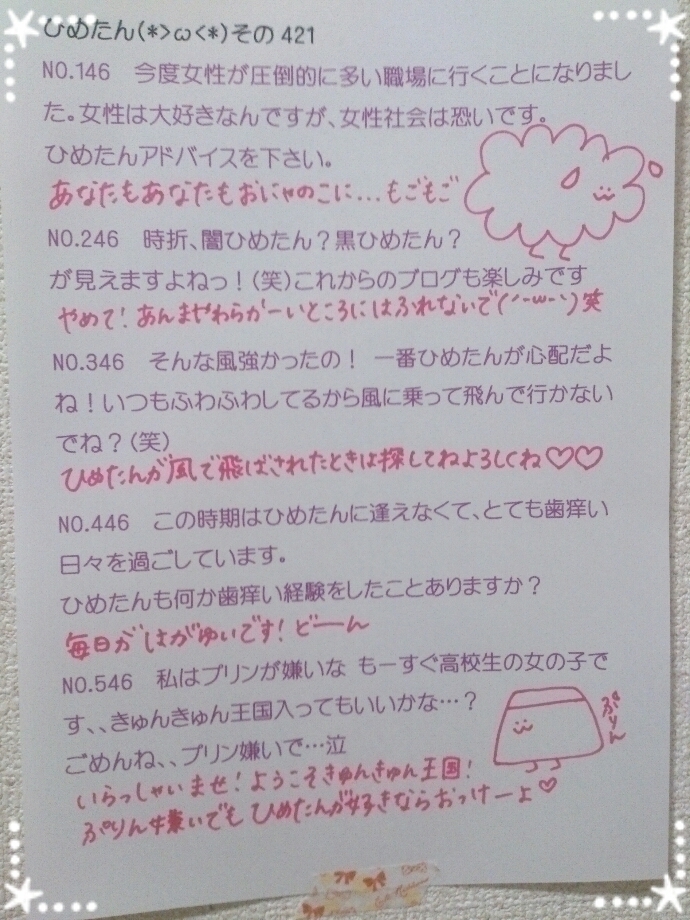 ひめたん(*>ω<*)その421
NO.146　今度女性が圧倒的に多い職場に行くことになりまし
た。女性は大好きなんですが、女性社会は恐いです。
ひめたんアドバイスを下さい。
あなたもあなたもおにゃのこに...もごもご
NO.246　時折、闇ひめたん？黒ひめたん？
が見えますよねっ！(笑)これからのブログも楽しみです
やめて！あんまやわらかーいところにはふれないで(´-ω-｀)笑
NO.346　そんな風強かったの！ 一番ひめたんが心配だよ
ね！いつもふわふわしてるから風に乗って飛んで行かない
でね？(笑)
ひめたんが風で飛ばされたときは探してねよろしくね♡♡
NO.446　この時期はひめたんに逢えなくて、とても歯痒い
日々を過ごしています。
ひめたんも何か歯痒い経験をしたことありますか？
毎日がはがゆいです！どーーん
NO.546　私はプリンが嫌いな もーすぐ高校生の女の子で
す、、きゅんきゅん王国入ってもいいかな…？
ごめんね、、プリン嫌いで…泣
ぷりん
いらっしゃいませ！ようこそきゅんきゅん王国！
ぷりん嫌いでもひめたんが好きならおっけーよ♡